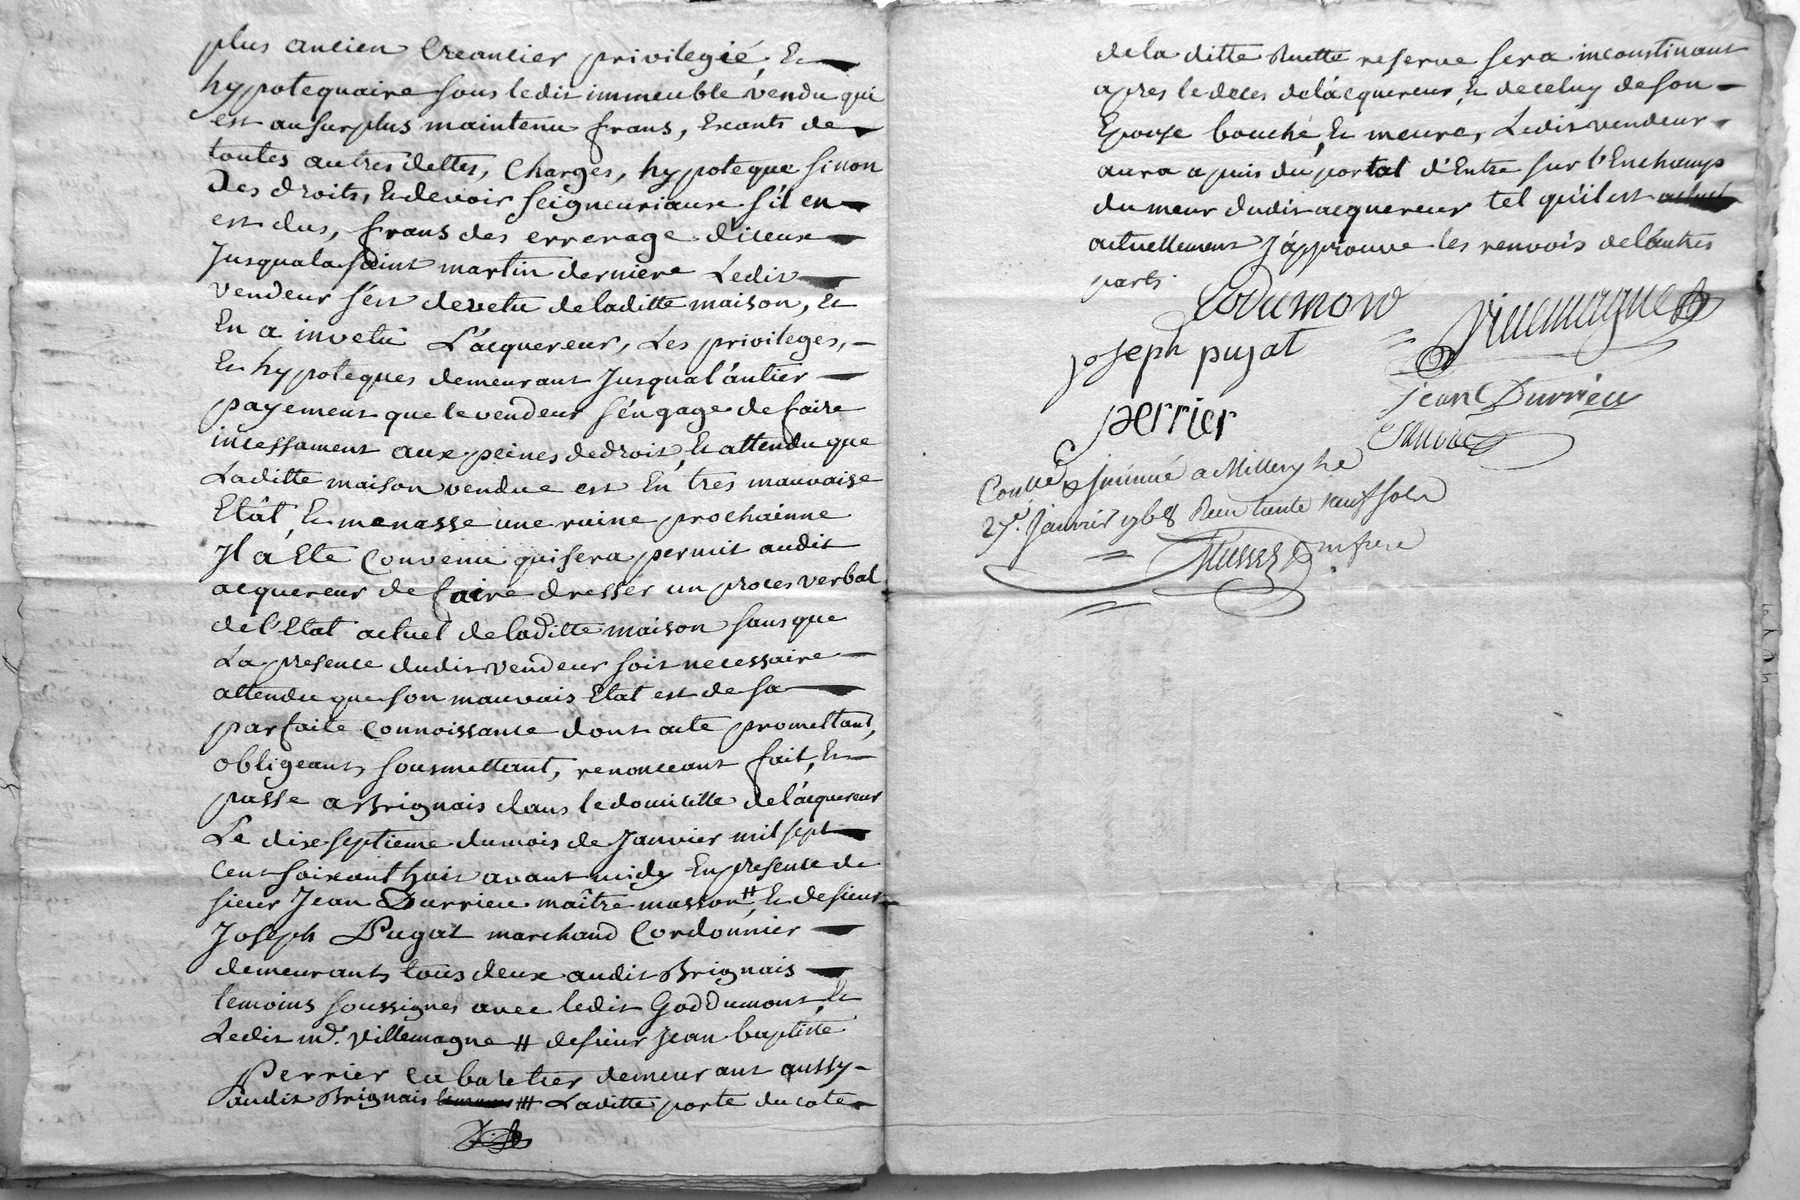 plus ancien Creancier privilegié, Et
hypotequaire sous ledit immeuble vendu qui
est au surplus maintenu francs, Exants de
toutes autres dettes, Charges, hypoteque sinon
Des droits, Et devoir seigneuriaux s'il en
est dus, francs des errerage d'iceux
Jusqu'a la saint martin derniere Ledit
vendeur s'est devetu de laditte maison, Et
En a invetu L'acquereur, Les privileges,
Et hypoteques demeurant Jusqu'a l'antier
payement que le vendeur s'engage de faire
incessament aux peines de droit, Et attendu que
Laditte maison vendue est En tres mauvaise
Etât, Et menasse une ruine prochainne
Jl a Ete Convenu qui sera permit audit
acquereur de faire dresser un proces verbal
de l'Etat actuel de laditte maison sans que
La presence dudit vendeur soit necessaire
attendu que son mauvais Etat est de sa
parfaite Connoissance dont acte promettant,
obligeant, sousmettant, renonceant fait, Et
passe a Brignais dans le domicille de l'acquereur
Le dixseptieme du mois de Janvier mil sept
Cent soixant huit avant midy En presence de
sieur Jean Durrieu maître masson # Et de sieur
Joseph Pugat marchand Cordonnier
demeurants tous deux audit Brignais
temoins soussignes avec ledit Goddumont, Et
Ledit md. Villemagne # de sieur jean baptiste
Perrier cabaretier demeurant aussy
audit Brignais ## Laditte porte du cote
de la ditte ruette reserve sera incontinant
apres le deces de l'acquereur, Et de celuy de son
Epouse bouché, Et meuré, Ledit vendeur
aura apuis du portal d'Entre sur l'Enchamp
du meur dudit acquereur tel qu'il est
actuellement J'approuve les renvois de l'autres
parts
Godumond
Villemagne
joseph pugat
jean Durrieu
perrier
Conllé & Jnsinué a Millery le
27e. Janvier 1768 Reçu trente neuf sols